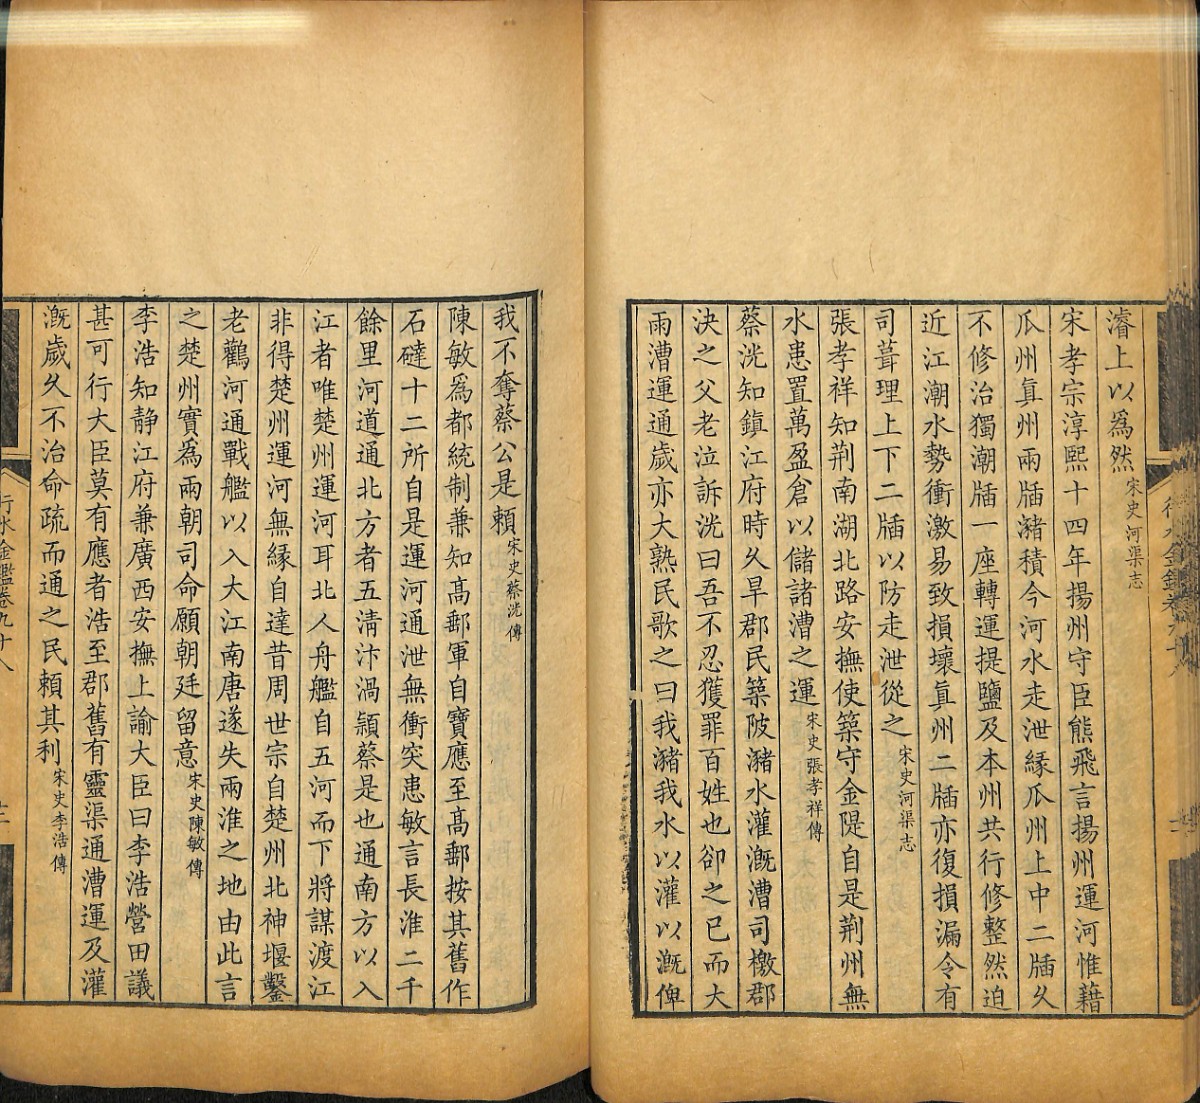 濬上以爲然宋史河渠志
宋孝宗淳熙十四年揚州守臣熊飛言揚州運河惟藉
瓜州眞州兩牐瀦積今河水走泄緣瓜州上中二牐久
不修治獨潮牐一座轉運提鹽及本州共行修整然迫
近江潮水勢衝激易致損壞眞州二牐亦復損漏令有
司葺理上下二牐以防走泄從之宋史河渠志
張孝祥知荆南湖北路安撫使築守金隄自是荆州無
水患置萬盈倉以儲諸漕之運宋史張孝祥傳
蔡洸知鎮江府時久旱郡民築陂瀦水灌漑漕司檄郡
決之父老泣訴洸曰吾不忍獲罪百姓也卻之已而大
雨漕運通歲亦大熟民歌之曰我瀦我水以灌以漑俾
我不奪蔡公是賴宋史蔡洸傳
陳敏爲都統制兼知高郵軍自寶應至高郵按其舊作
石䃮十二所自是運河通泄無衝突患敏言長淮二千
餘里河道通北方者五淸汴渦潁蔡是也通南方以入
江者唯楚州運河耳北人舟艦自五河而下將謀渡江
非得楚州運河無緣自達昔周世宗自楚州北神堰鑿
老鸛河通戰艦以入大江南唐遂失兩淮之地由此言
之楚州實爲兩朝司命願朝廷留意宋史陳敏傳
李浩知静江府兼廣西安撫上諭大臣曰李浩營田議
甚可行大臣莫有應者浩至郡舊有靈渠通漕運及灌
漑歲久不治命疏而通之民賴其利宋史李浩傳
行水金鑑卷九十八